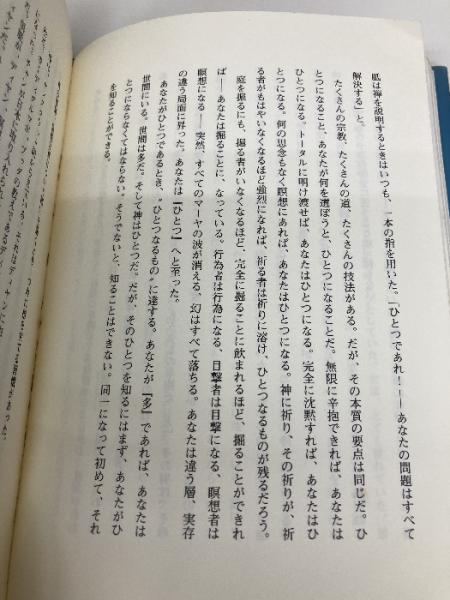 胝は禅を説明するときはいつも、一本の指を用いた。「ひとつであれ！――あなたの問題はすべて
解決する」と。
たくさんの宗教、たくさんの道、たくさんの技法がある。だが、その本質の要点は同じだ。ひ
とつになること、あなたが何を選ぼうと、ひとつになることだ。無限に辛抱できれば、あなたは
ひとつになる。トータルに明け渡せば、あなたはひとつになる。完全に沈黙すれば、あなたはひ
とつになる。何の思念もなく瞑想にあれば、あなたはひとつになる。神に祈り、その祈りが、祈
る者がもはやいなくなるほど強烈になれば、祈る者は祈りに溶け、ひとつなるものが残るだろう。
庭を掘るにも、掘る者がいなくなるほど、完全に掘ることに飲まれるほど、掘ることができれ
ば――あなたは掘ることに、なっている。行為者は行為になる、目撃者は目撃になる、瞑想者は
瞑想になる――突然、すべてのマーヤの波が消える、幻はすべて落ちる。あなたは違う層、実存
の違う局面に昇った。あなたは『ひとつ』へと至った。
あなたがひとつであるとき、“ひとつなるもの”に達する。あなたが『多』であれば、あなたは
世間にいる。世間は多だ。そして神はひとつだ。だが、そのひとつを知るにはまず、あなたがひ
とつにならなくてはならない。そうでないと、知ることはできない。同一になって初めて、それ
を知ることができる。